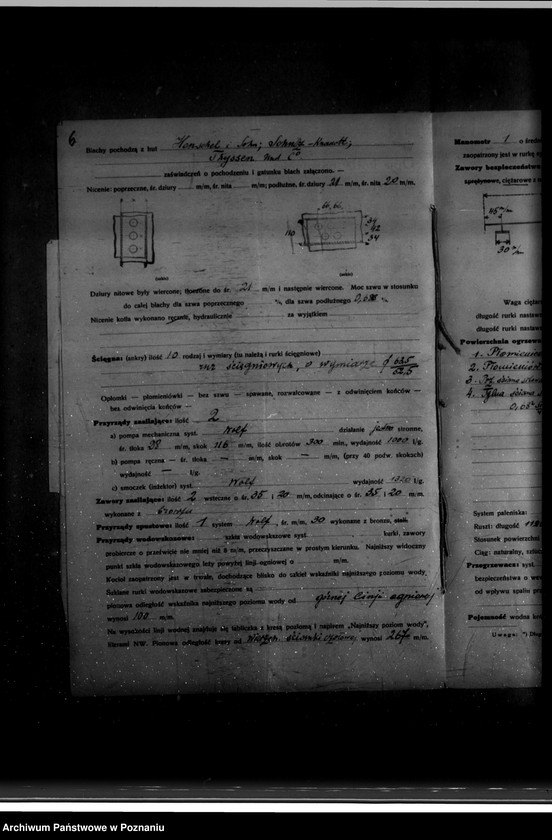 6
Blachy pochodzą z hut Henschel i Sohn;
Thyssen und Co
zaświadczeń o pochodzeniu i gatunku blach załączono. —
Nicenie: poprzeczne, śr. dziury m/m, śr. nita m/m; podłużne, śr. dziury 21 m/m, śr. nita 20 m/m.
110
34
42
34
Dziury nitowe były wiercone; tłoczone do śr. 21 m/m i następnie wiercone. Moc szwu w stosunku
do całej blachy dla szwa poprzecznego % dla szwa podłużnego %
Nicenie kotła wykonano ręcznie, hydraulicznie za wyjątkiem
Ściągna: (ankry) ilość 10 rodzaj i wymiary (tu należą i rurki ściągniowe)
rur ściągniowych, o wymiarze ∮ 63,5
52,5
Opłomki — płomieniówki — bez szwu — spawane, rozwalcowane — z odwinięciem końców —
bez odwinięcia końców —
Przyrządy zasilające: ilość 2
a) pompa mechaniczna syst. Wolf działania jedno stronne,
śr. tłoka 28 m/m, skok 116 m/m, ilość obrotów 300 min., wydajność 1000 l/g.
b) pompa ręczna — śr. tłoka — m/m, skok — m/m, (przy 40 podw. skokach)
wydajność — l/g.
c) smoczek (inżektor) syst. Wolf wydajność l/g.
Zawory zasilające: ilość 2 wsteczne o śr. 35 i 20 m/m, odcinające o śr. 35 i 20 m/m.
wykonane z bronzu
Przyrządy spustowe: ilość 1 system Wolf, śr. m/m, 30 wykonane z bronzu, stali.
Przyrządy wodowskazowe: szkła wodowskazowe syst. kurki, zawory
probiercze o prześwicie nie mniej niż 8 m/m, przeczyszczane w prostym kierunku. Najniższy widoczny
punkt szkła wodowskazowego leży powyżej linji-ogniowej o m/m.
Kocioł zaopatrzony jest w trwałe, dochodzące blisko do szkieł wskaźniki najniższego poziomu wody,
Szklane rurki wodowskazowe zabezpieczone są
pionowa odległość wskaźnika najniższego poziomu wody od górnej linji ogniowej
wynosi 100 m/m.
Na wysokości linji wodnej znajduje się tabliczka z kresą poziomą i napisem „Najniższy poziom wody",
literami NW. Pionowa odległość kresy od ścianki wynosi 267 m/m.
Manometr 1 o śred
zaopatrzony jest w rurkę
Zawory bezpieczeństwa
sprężynowe, ciężarowe z
45 m/m
30 m/m
Waga cięża
długość rurki nastaw
długość rurki nastaw
Powierzchnia ogrzew
1. Płomieniow
2. Płomieniow
3.
4. Tylna ściana
System paleniska:
Ruszt długość
Stosunek powierzchni
Ciąg: naturalny, sztuc
Przegrzewacz: syst.
bezpieczeństwa o
od wpływu spalin
Pojemność wodna kot
Uwaga: *) Dług
Archiwum Państwowe w Poznaniu